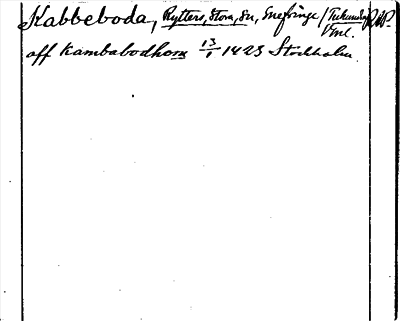 Kabbeboda, Rytters, Stora, Sn, Snefringe / RAP.
Vml.
aff Kambabodhom 13/1 1423 Stockholm